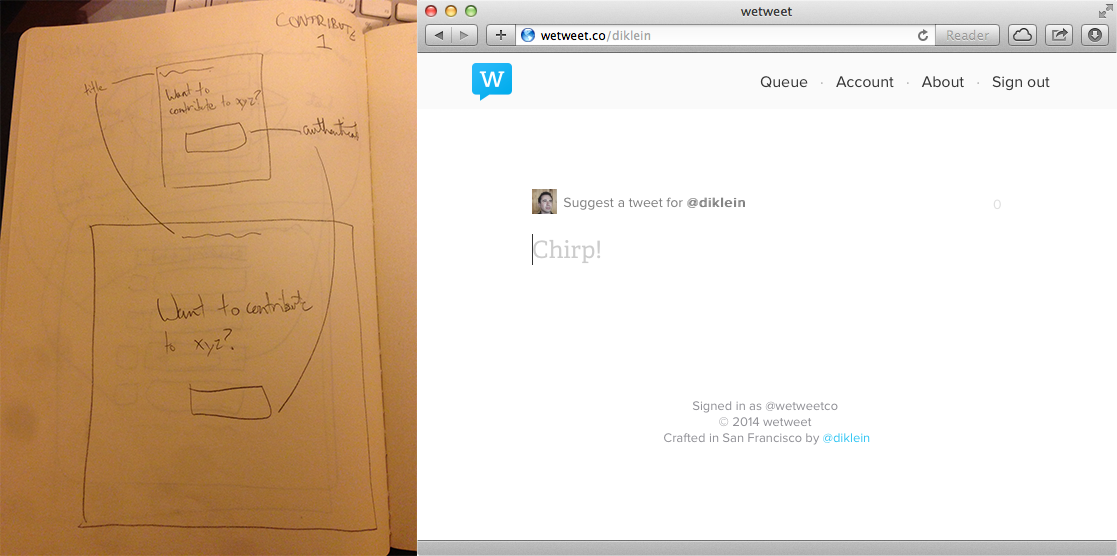 CONTRIBUTE
1
title
Want to
contribute to xyz?
authenticate
Want to contribute
to xyz?
wetweet
wetweet.co/diklein
Reader
W
Queue · Account · About · Sign out
Suggest a tweet for @diklein
0
Chirp!
Signed in as @wetweetco
© 2014 wetweet
Crafted in San Francisco by @diklein